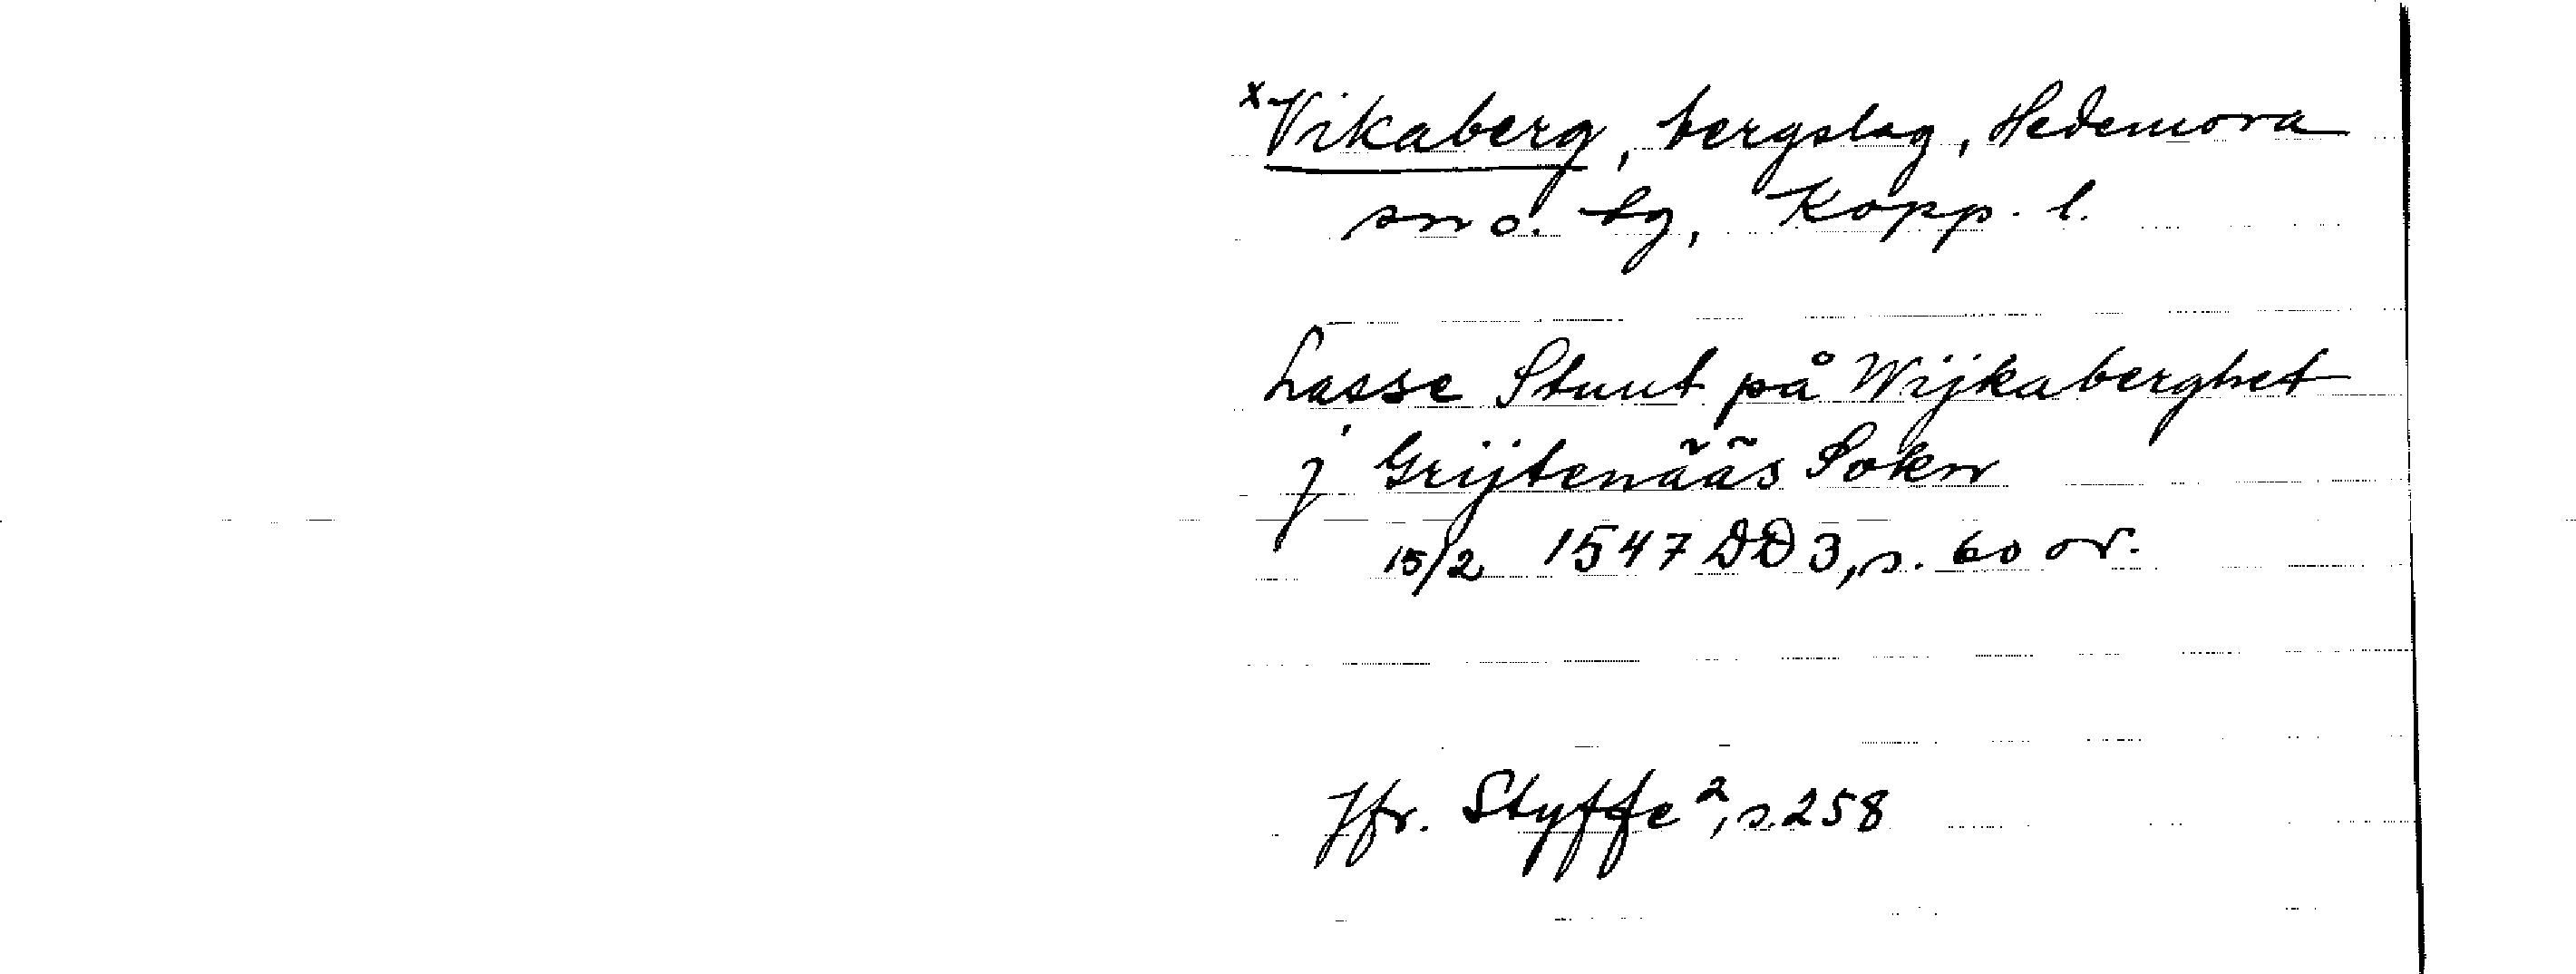 x Vikaberg, bergslag, Hedemora
sn o. tg, Kopp. l.
Lasse Stuut på Wijkaberghet
j Grijtenääs Sokn
15/2 1547 DD 3, s. 60 or.
Jfr. Styffe², s. 258